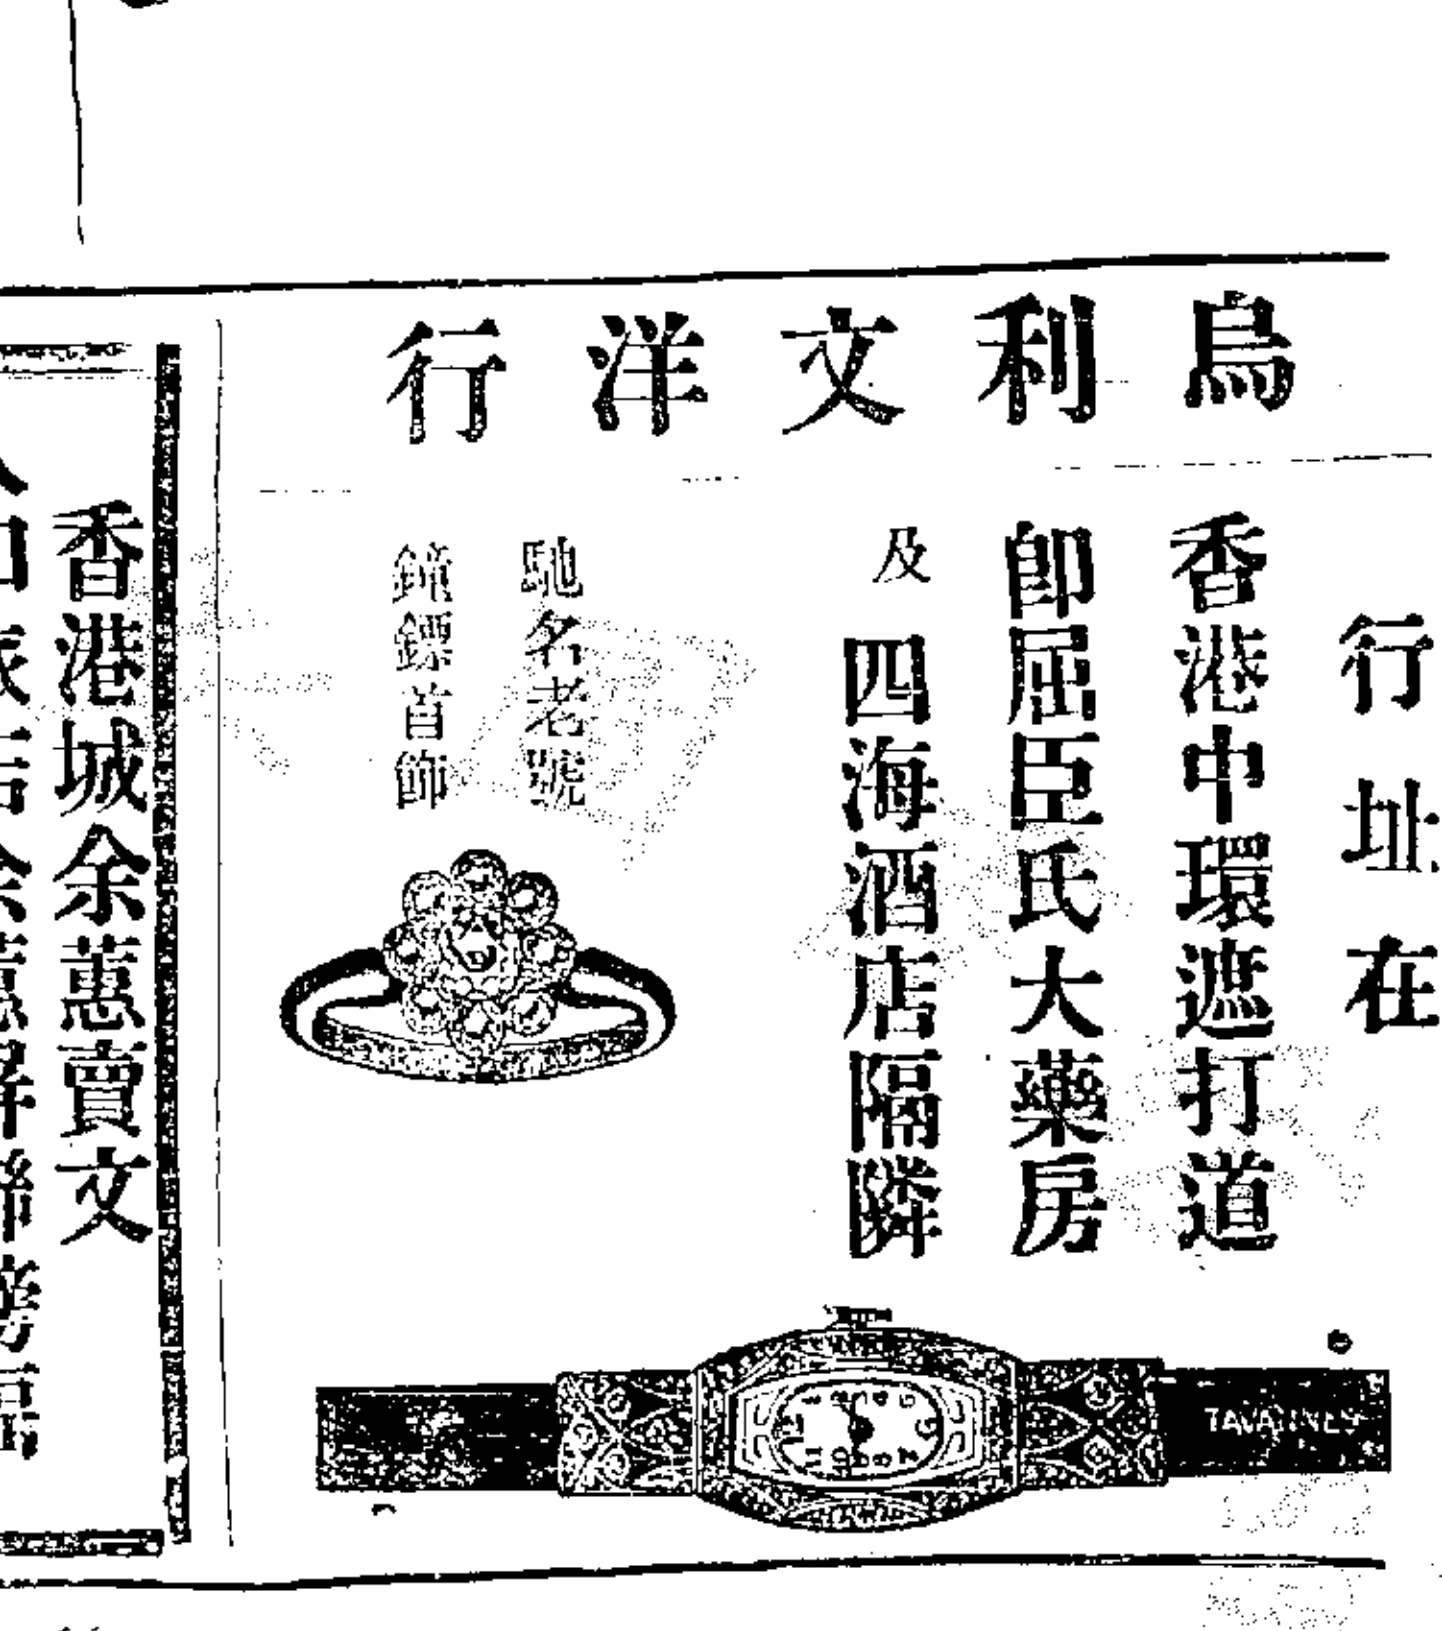 烏利文洋行
行址在
香港中環遮打道
卽屈臣氏大藥房
及四海酒店隔隣
馳名老號
鐘鏢首飾
TAVANNES
香港城余蕙賣文